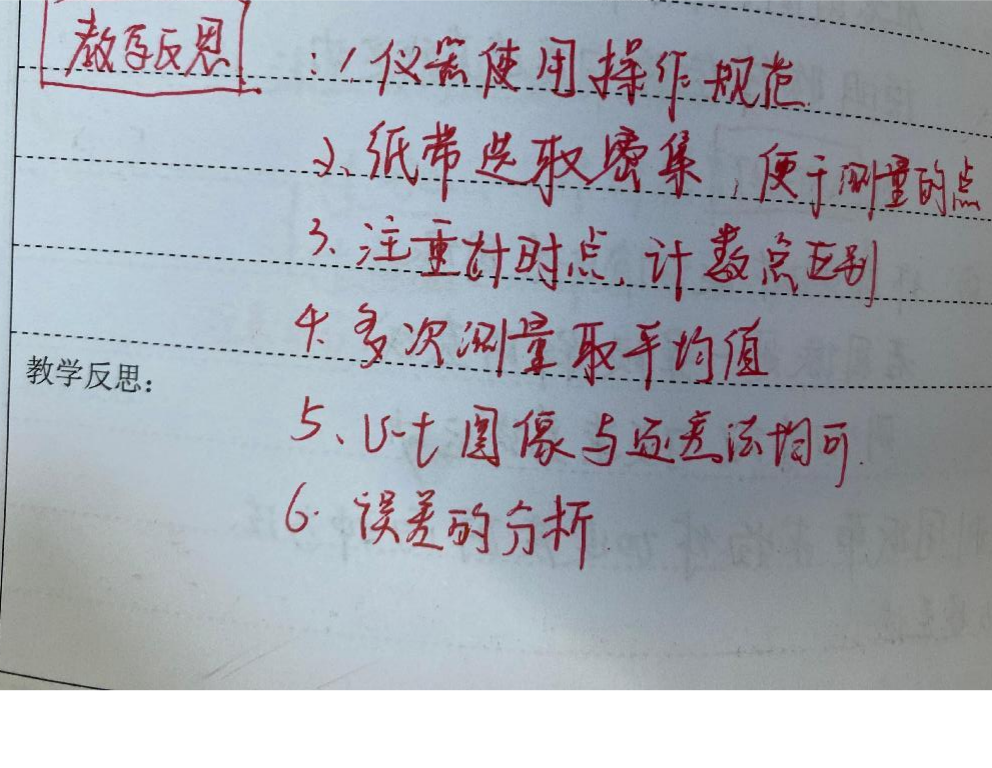 教学反思:1、仪器使用操作规范
2、纸带选取密集,便于测量的点
3、注重计时点、计数点区别
4、多次测量取平均值
教学反思:
5、v-t图像与逐差法均可.
6.误差的分析